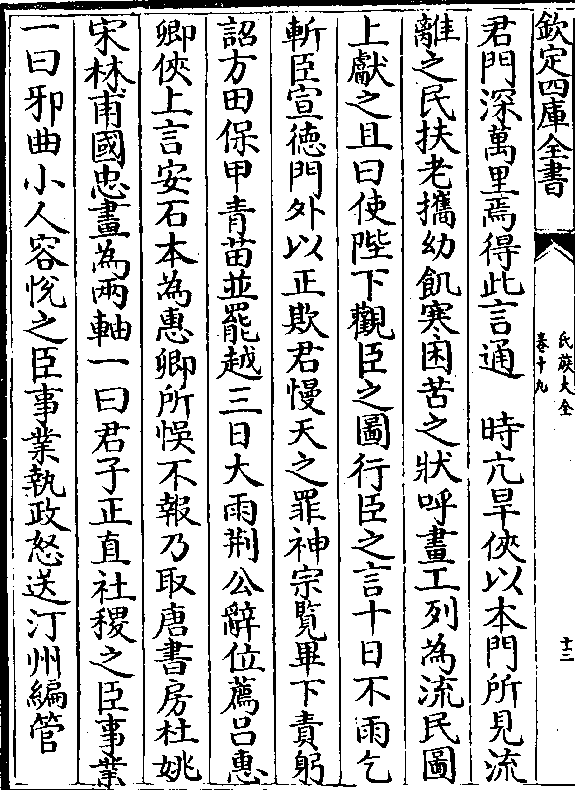 欽定四庫全書
氏族大全
卷十九
十三
君門深萬里焉得此言通　時亢旱俠以本門所見流
離之民扶老攜幼飢寒困苦之狀呼畫工列為流民圖
上獻之且曰使陛下觀臣之圖行臣之言十日不雨乞
斬臣宣徳門外以正欺君慢天之罪神宗覧畢下責躬
詔方田保甲青苗並罷越三日大雨荆公辭位薦吕惠
卿俠上言安石本為惠卿所悞不報乃取唐書房杜姚
宋林甫國忠畫為兩軸一曰君子正直社稷之臣事業
一曰邪曲小人容悅之臣事業執政怒送汀州編管